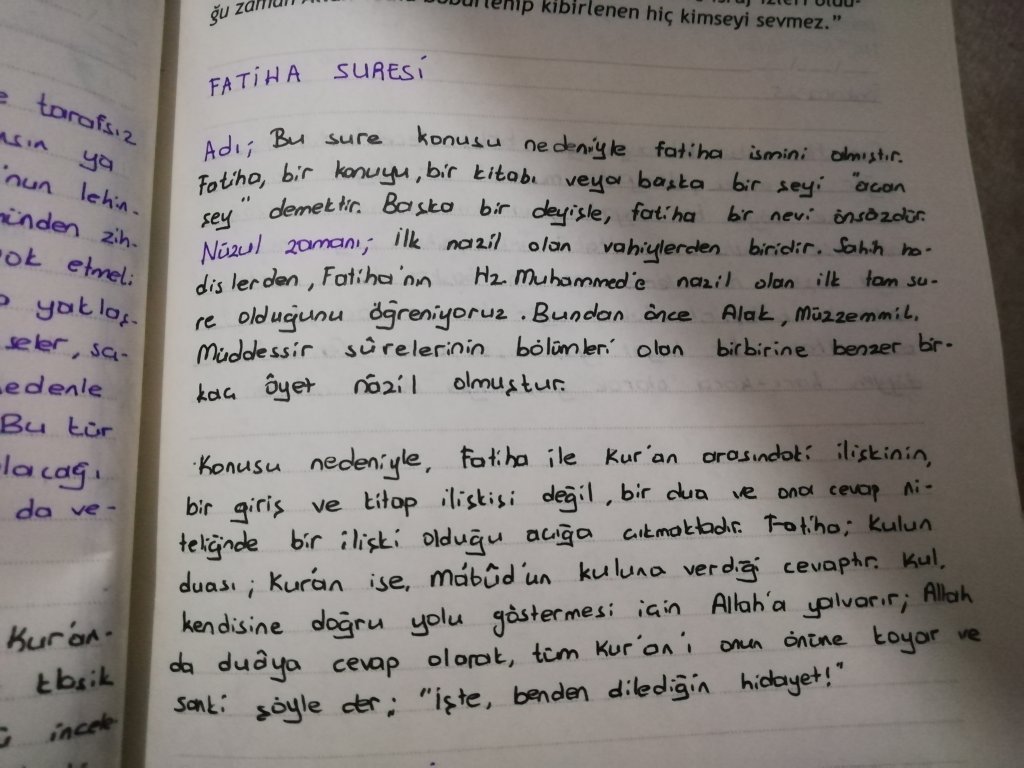 ğu zaman
kibirlenen hiç kimseyi sevmez."
FATİHA SURESİ
Adı; Bu sure konusu nedeniyle fatiha ismini almıştır.
Fatiha, bir konuyu, bir kitabı veya başka bir seyi "acan
sey" demektir. Başka bir deyişle, fatiha bir nevi önsözdür.
Nüzul zamanı; İlk nazil olan vahiylerden biridir. Sahih ha-
dislerden, Fatiha'nın Hz. Muhammed'e nazil olan ilk tam su-
re olduğunu öğreniyoruz. Bundan önce Alak, Müzzemmil,
Müddessir sûrelerinin bölümleri olan birbirine benzer bir-
kaç âyet nâzil olmuştur.
Konusu nedeniyle, Fatiha ile Kur'an arasındaki ilişkinin,
bir giriş ve kitap ilişkisi değil, bir dua ve ona cevap ni-
teliğinde bir ilişki olduğu açığa çıkmaktadır. Fatiha; kulun
duası; Kur'an ise, Mâbûd'un kuluna verdiği cevaptır. Kul,
kendisine doğru yolu göstermesi için Allah'a yalvarır; Allah
da duâya cevap olarak, tüm Kur'an'ı onun önüne koyar ve
sanki şöyle der; "İşte, benden dilediğin hidayet!"
e tarafsız
ya
lehin-
zih-
etmeli
yaklaş-
seler, sa-
edenle
Bu tür
lacağı
da ve-
Kur'an-
klasik
incele-